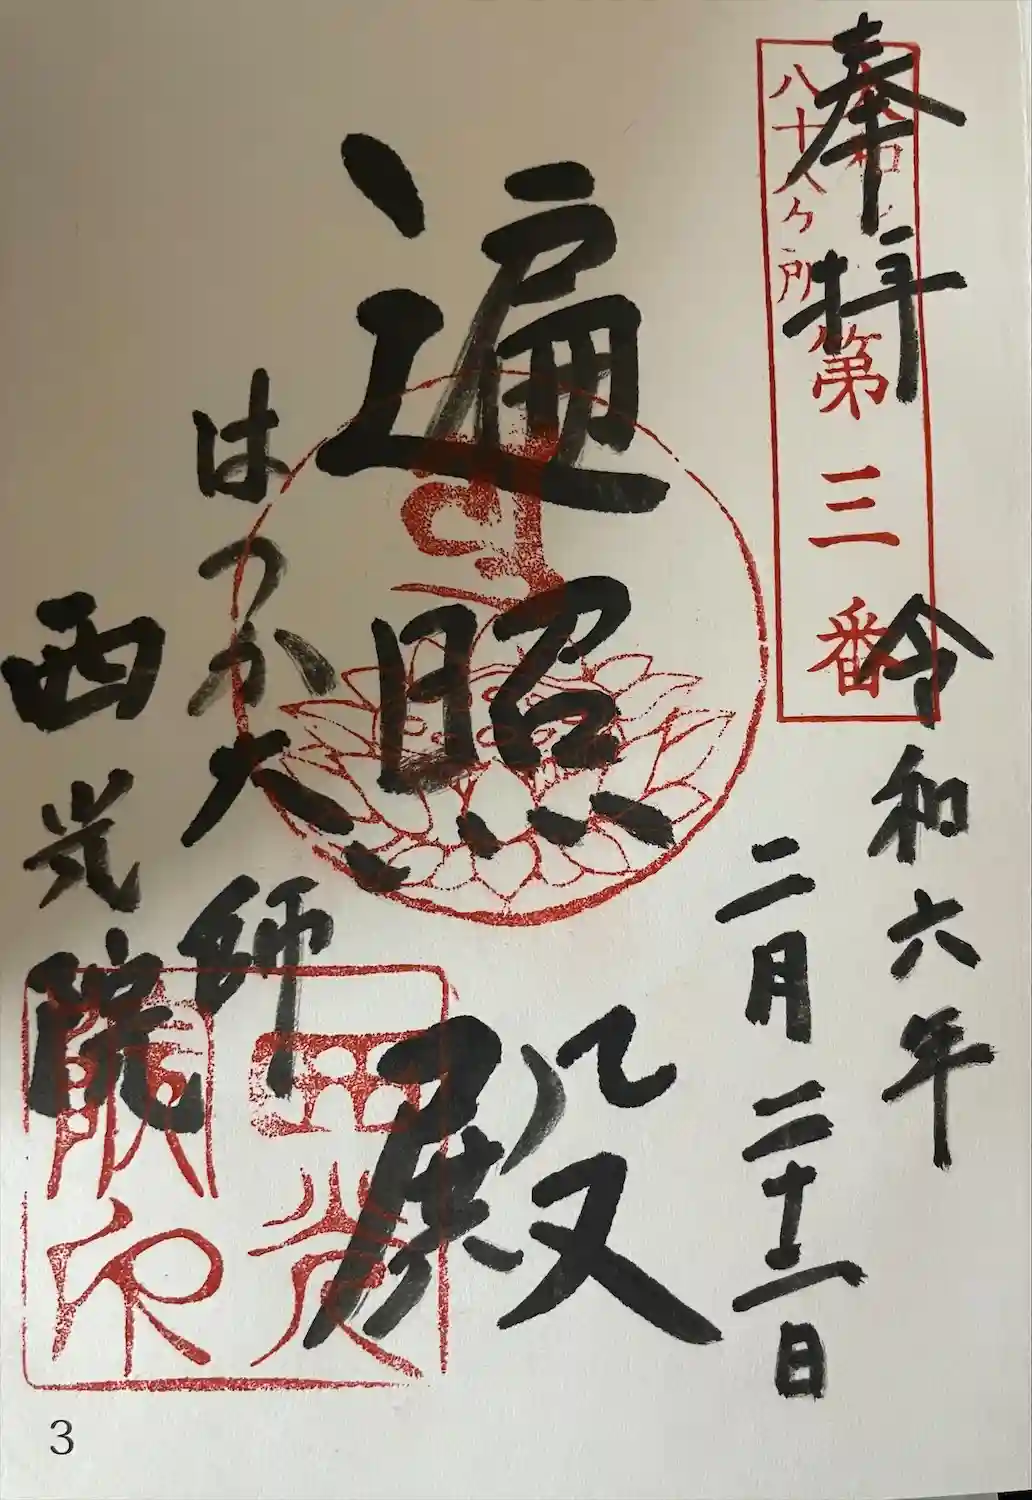 奉拝
大和
八十八ヶ所
第三番
令和六年
二月二十一日
遍照殿
はつか大師
西光院
3